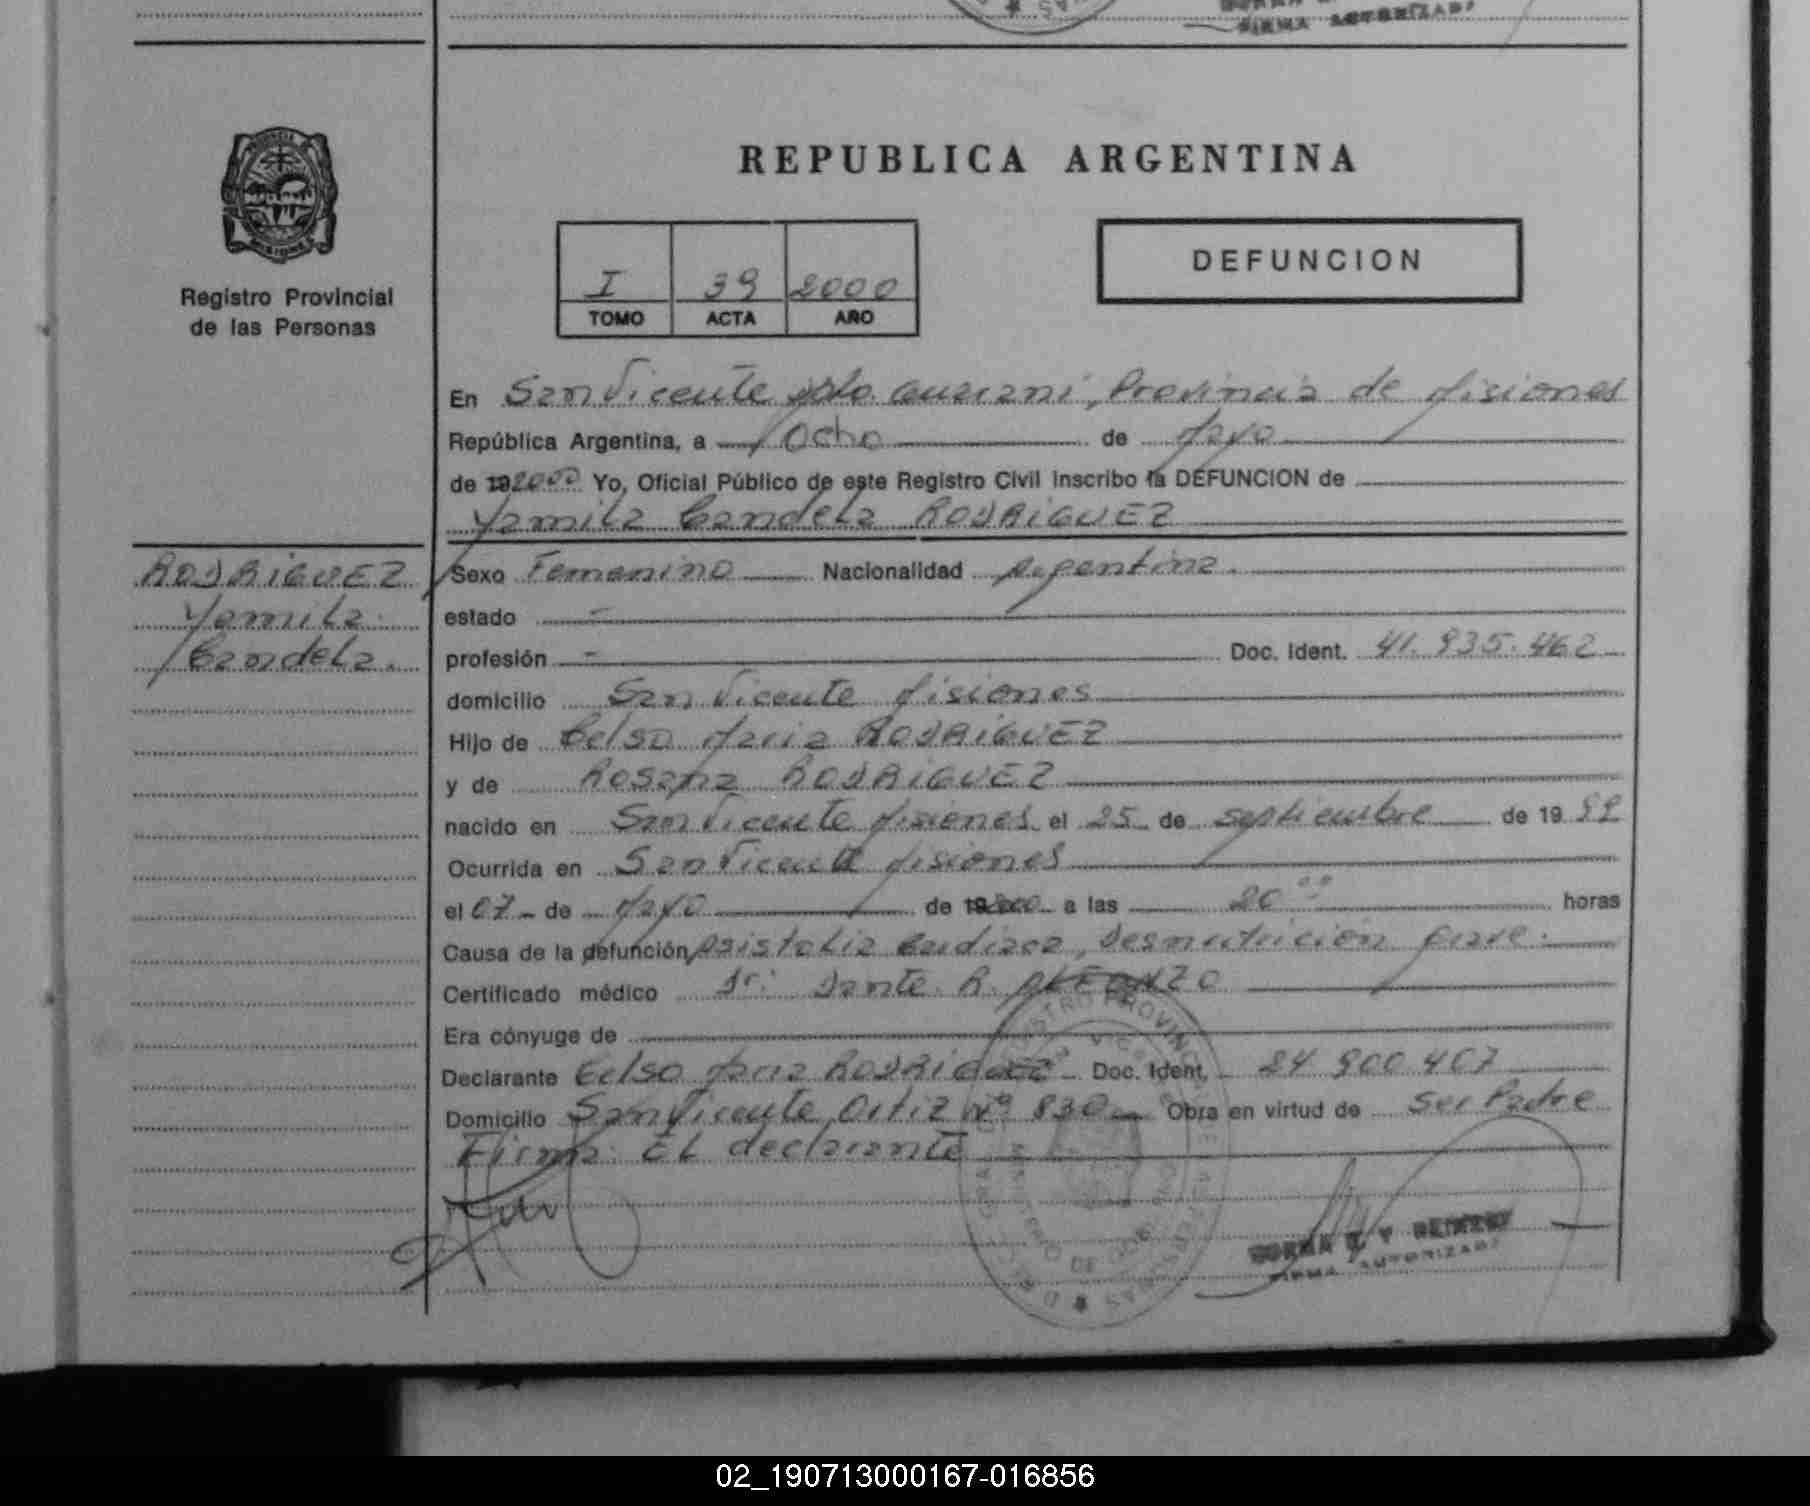 REPUBLICA ARGENTINA
Registro Provincial
de las Personas
I 39 2000
TOMO ACTA AÑO
DEFUNCION
En San Vicente Dpto. Guarani, Provincia de Misiones
República Argentina, a Ocho de Mayo
de 19 2000 Yo, Oficial Público de este Registro Civil inscribo la DEFUNCION de
Yamila Candela RODRIGUEZ
RODRIGUEZ
Yamila
Candela.
Sexo Femenino Nacionalidad Argentina.
estado -
profesión - Doc. Ident. 41.935.462
domicilio San Vicente Misiones
Hijo de Celso Maria RODRIGUEZ
y de Rosana RODRIGUEZ
nacido en San Vicente Misiones el 25 de septiembre de 19 99
Ocurrida en San Vicente Misiones
el 07 de Mayo de 19 2000 a las 20 00 horas
Causa de la defunción Asistolia Cardiaca, Desnutrición grave.
Certificado médico Dr. Dante R.
Era cónyuge de
Declarante Celso Maria RODRIGUEZ Doc. Ident. 24 900 407
Domicilio San Vicente Ortiz Nº 830 Obra en virtud de Ser Padre
Firma: El declarante
FIRMA AUTORIZADA
02_190713000167-016856